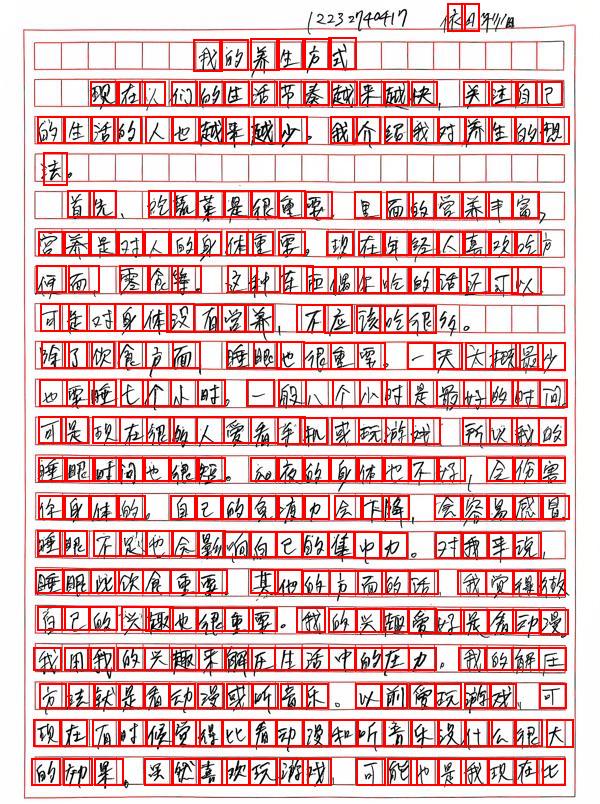 12232740417
我的养生方式
现在人们的生活节奏越来越快，关注自己
的生活的人也越来越少。我介绍我对养生的想
法。
首先，吃蔬菜是很重要，里面的营养丰富，
营养是对人的身体重要。现在年轻人喜欢吃方
便面，零食等。这种东西偶尔吃的话还可以
可是对身体没有营养，不应该吃很多。
除了饮食方面，睡眠也很重要。一天大概最少
也要睡七个小时。一般八个小时是最好的时间
可是现在很多人爱看手机或玩游戏，所以我的
睡眠时间也很短。如夜的身体也不好，会伤害
你身体的。自己的免疫力会下降，会容易感冒
睡眠不足也会影响自己的集中力。对我来说，
睡眠比饮食重要。其他的方面的话，我觉得做
自己的兴趣也很重要。我的兴趣爱好是看动漫
我用我的兴趣来解压生活中的压力。我的解压
方法就是看动漫或听音乐。以前爱玩游戏，可
现在有时候觉得比看动漫和听音乐没什么很大
的效果。虽然喜欢玩游戏，可能也是我现在比